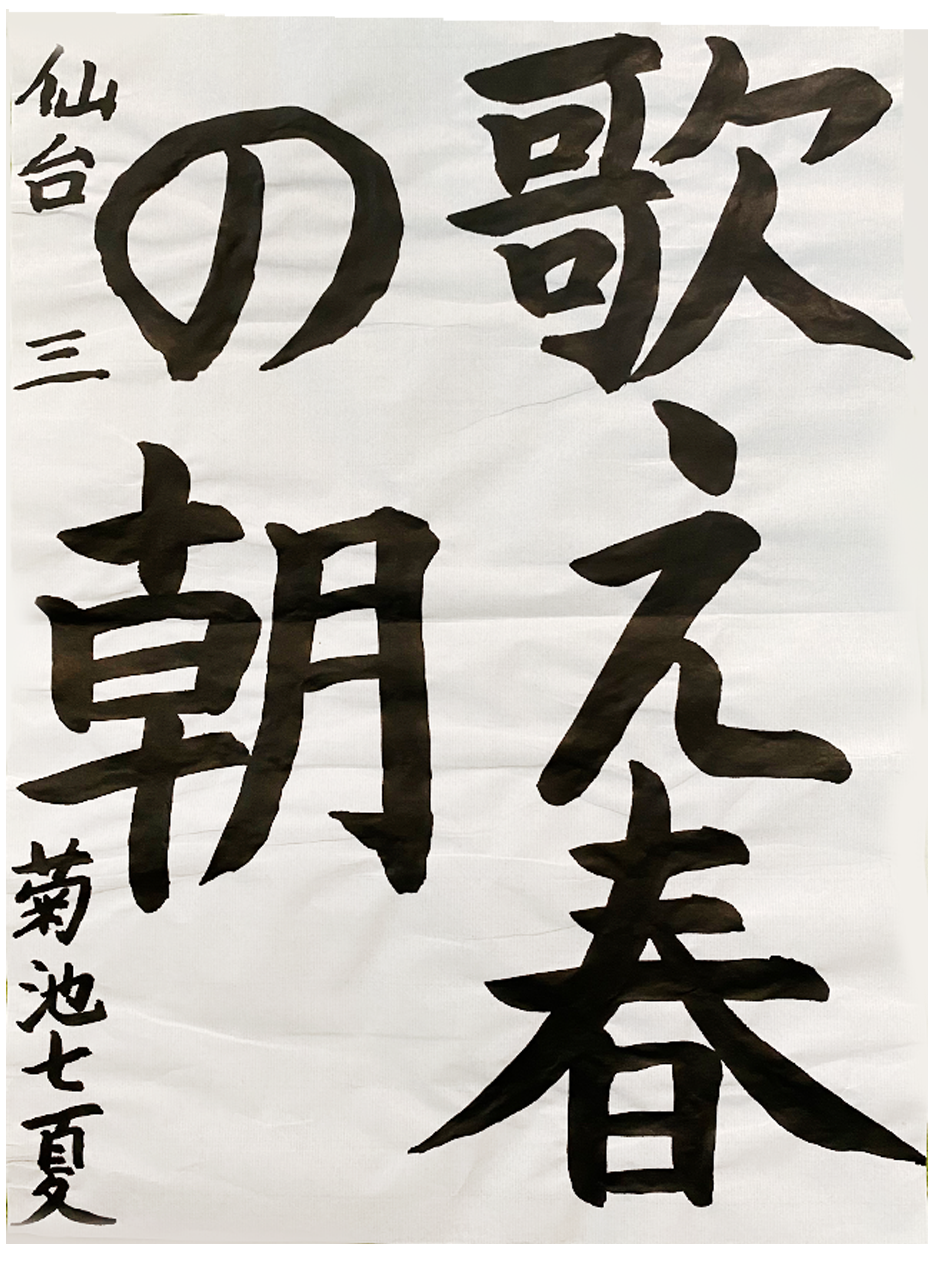 歌え春
の朝
仙台 三 菊池七夏